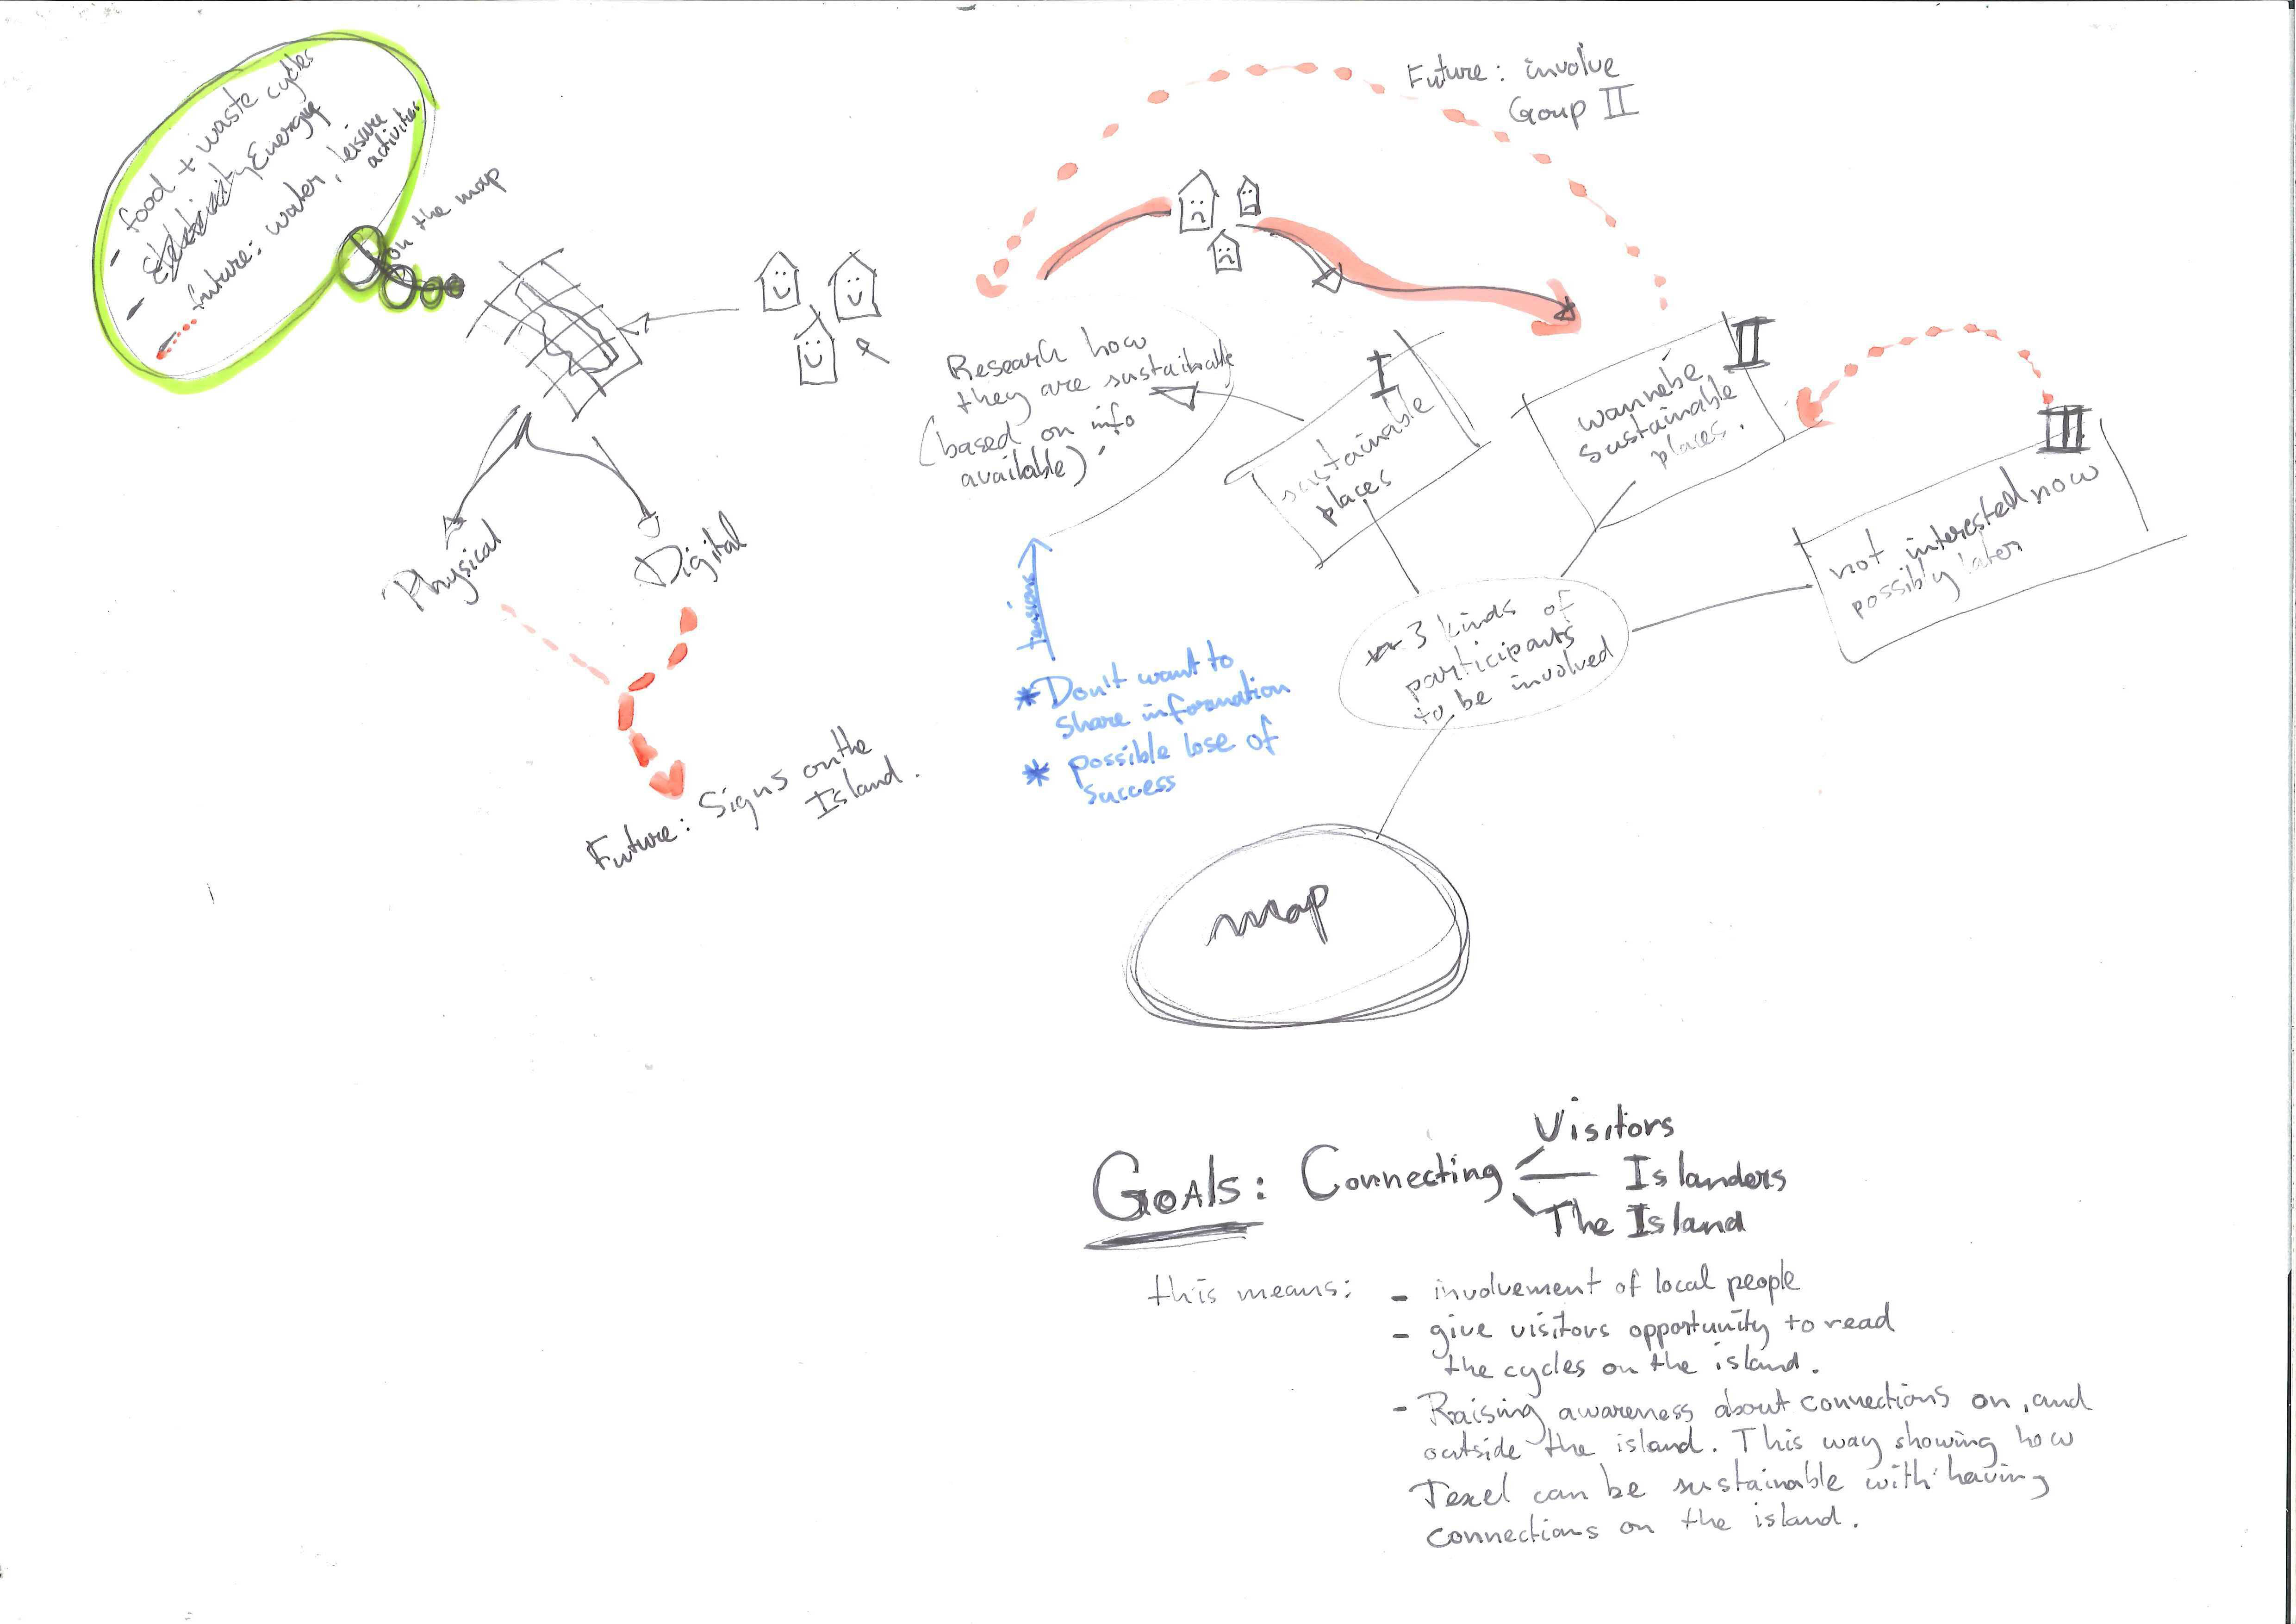 - food + waste cycles
- Electricity Energy
future: water, leisure
activities
on the map
Physical
Digital
Future: Signs on the
Island.
Future: involve
Group II
Research how
they are sustainable
(based on info
available)
tensions
* Don't want to
share information
* possible lose of
success
I
sustainable
places
II
wannebe
sustainable
places.
III
not interested now
possibly later
3 kinds of
participants
to be involved
Map
GOAls: Connecting
Visitors
Islanders
The Island
this means:
- involvement of local people
- give visitors opportunity to read
the cycles on the island.
- Raising awareness about connections on, and
outside the island. This way showing how
Texel can be sustainable with having
connections on the island.